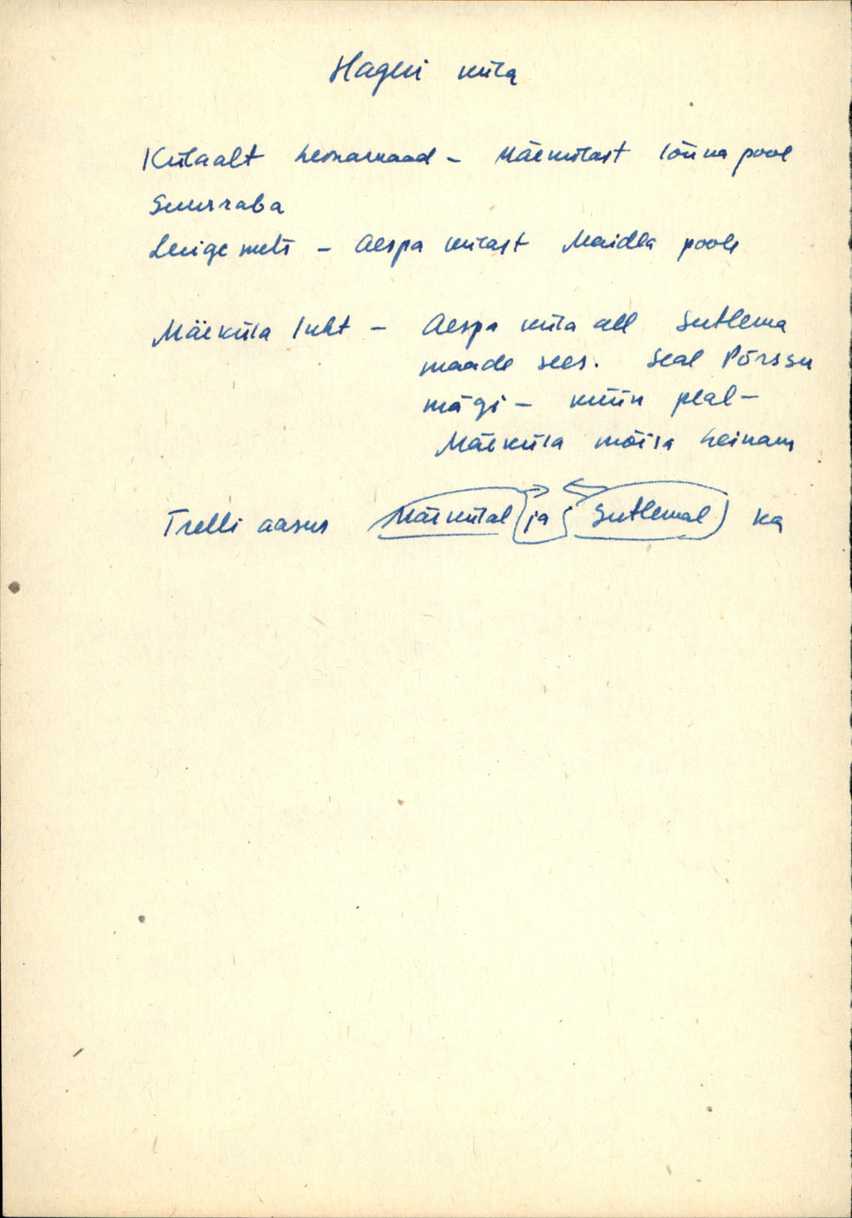 Hageri küla
Külaalt heinamaad - Mäekülast lõuna pool
Suurraba
metz - Aespa külast Maidla poole
Mäeküla luht - Aespa küla all Sutlema
maade sees. Seal Põrssu
mägi - küün peal -
Mäeküla mõisa heinam
Trelli aasus Mäekülal ja Sutlemal ka